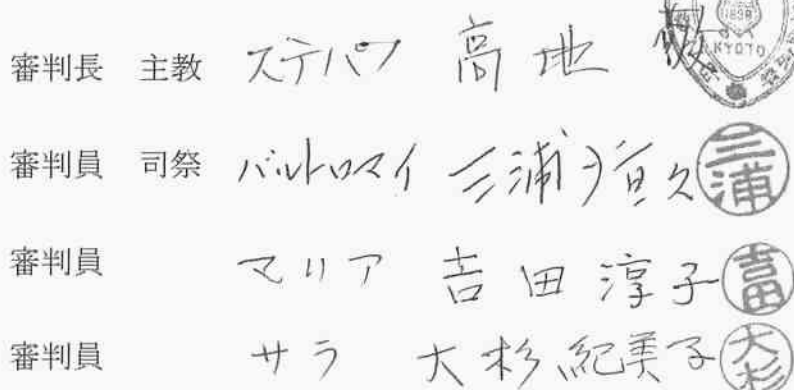 審判長 主教 ステパノ 高地 敬
1898
KYOTO
審判員 司祭 バルトロマイ 三浦恒久
三浦
審判員 マリア 吉田淳子
吉田
審判員 サラ 大杉紀美子
大杉